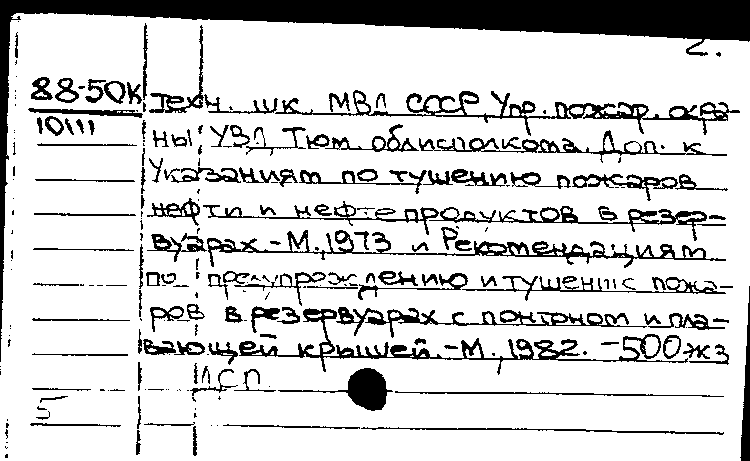 2.
88-50К техн. шк. МВД СССР, Упр. пожар. охра-
10111 ны УВД Тюм. облисполкома. Доп. к
Указаниям по тушению пожаров
нефти и нефтепродуктов в резер-
вуарах.-М.,1973 и Рекомендациям
по предупреждению и тушению пожа-
ров в резервуарах с понтоном и пла-
вающей крышей.-М.,1982. -500жз
ДСП
5